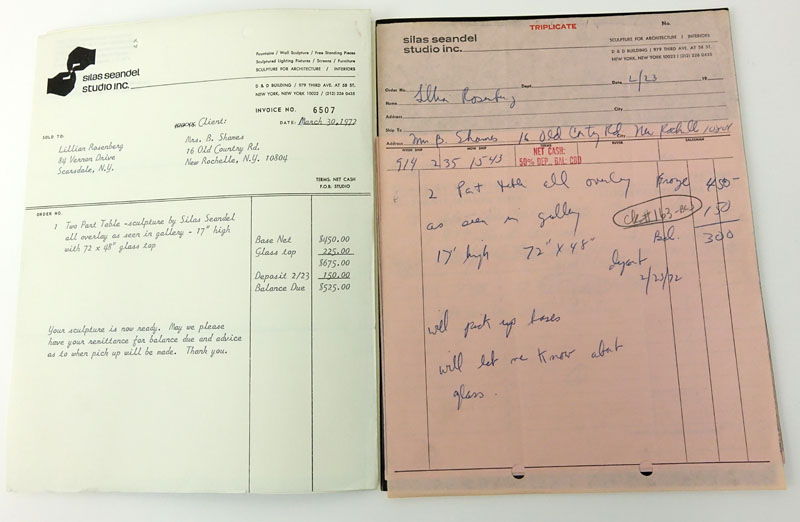 silas seandel
studio inc.
Fountains / Wall Sculpture / Free Standing Pieces
Sculptured Lighting Fixtures / Screens / Furniture
SCULPTURE FOR ARCHITECTURE / INTERIORS
D & D BUILDING / 979 THIRD AVE. AT 58 ST.
NEW YORK, NEW YORK 10022 / (212) 226 0435
INVOICE NO. 6507
DATE: March 30, 1972
SOLD TO:
Lillian Rosenberg
84 Vernon Drive
Scarsdale, N.Y.
Client:
Mrs. B. Shames
16 Old Country Rd.
New Rochelle, N.Y. 10804
TERMS: NET CASH
F.O.B. STUDIO
ORDER NO.
1 Two Part Table - sculpture by Silas Seandel
all overlay as seen in gallery - 17" high
with 72 x 48" glass top
Base Net $450.00
Glass top 225.00
$675.00
Deposit 2/23 150.00
Balance Due $525.00
Your sculpture is now ready. May we please
have your remittance for balance due and advice
as to when pick up will be made. Thank you.
TRIPLICATE
No.
silas seandel
studio inc.
SCULPTURE FOR ARCHITECTURE / INTERIORS
D & D BUILDING / 979 THIRD AVE. AT 58 ST.
NEW YORK, NEW YORK 10022 / (212) 226 0435
Order No. Dept. Date 2/23 19
Name Lillian Rosenberg
Address City
Ship To
Address Mrs B. Shames 16 Old Rd. City New Rochelle
WHEN SHIP HOW SHIP SALESMAN
914 235 1543
NET CASH:
50% DEP., BAL: CBD
2 Part table all overlay Bronze 450-
as seen in gallery ck#163 150
17" high 72" x 48" Bal. 300
Deposit
2/23/72
will pick up bases
will let me know about
glass.